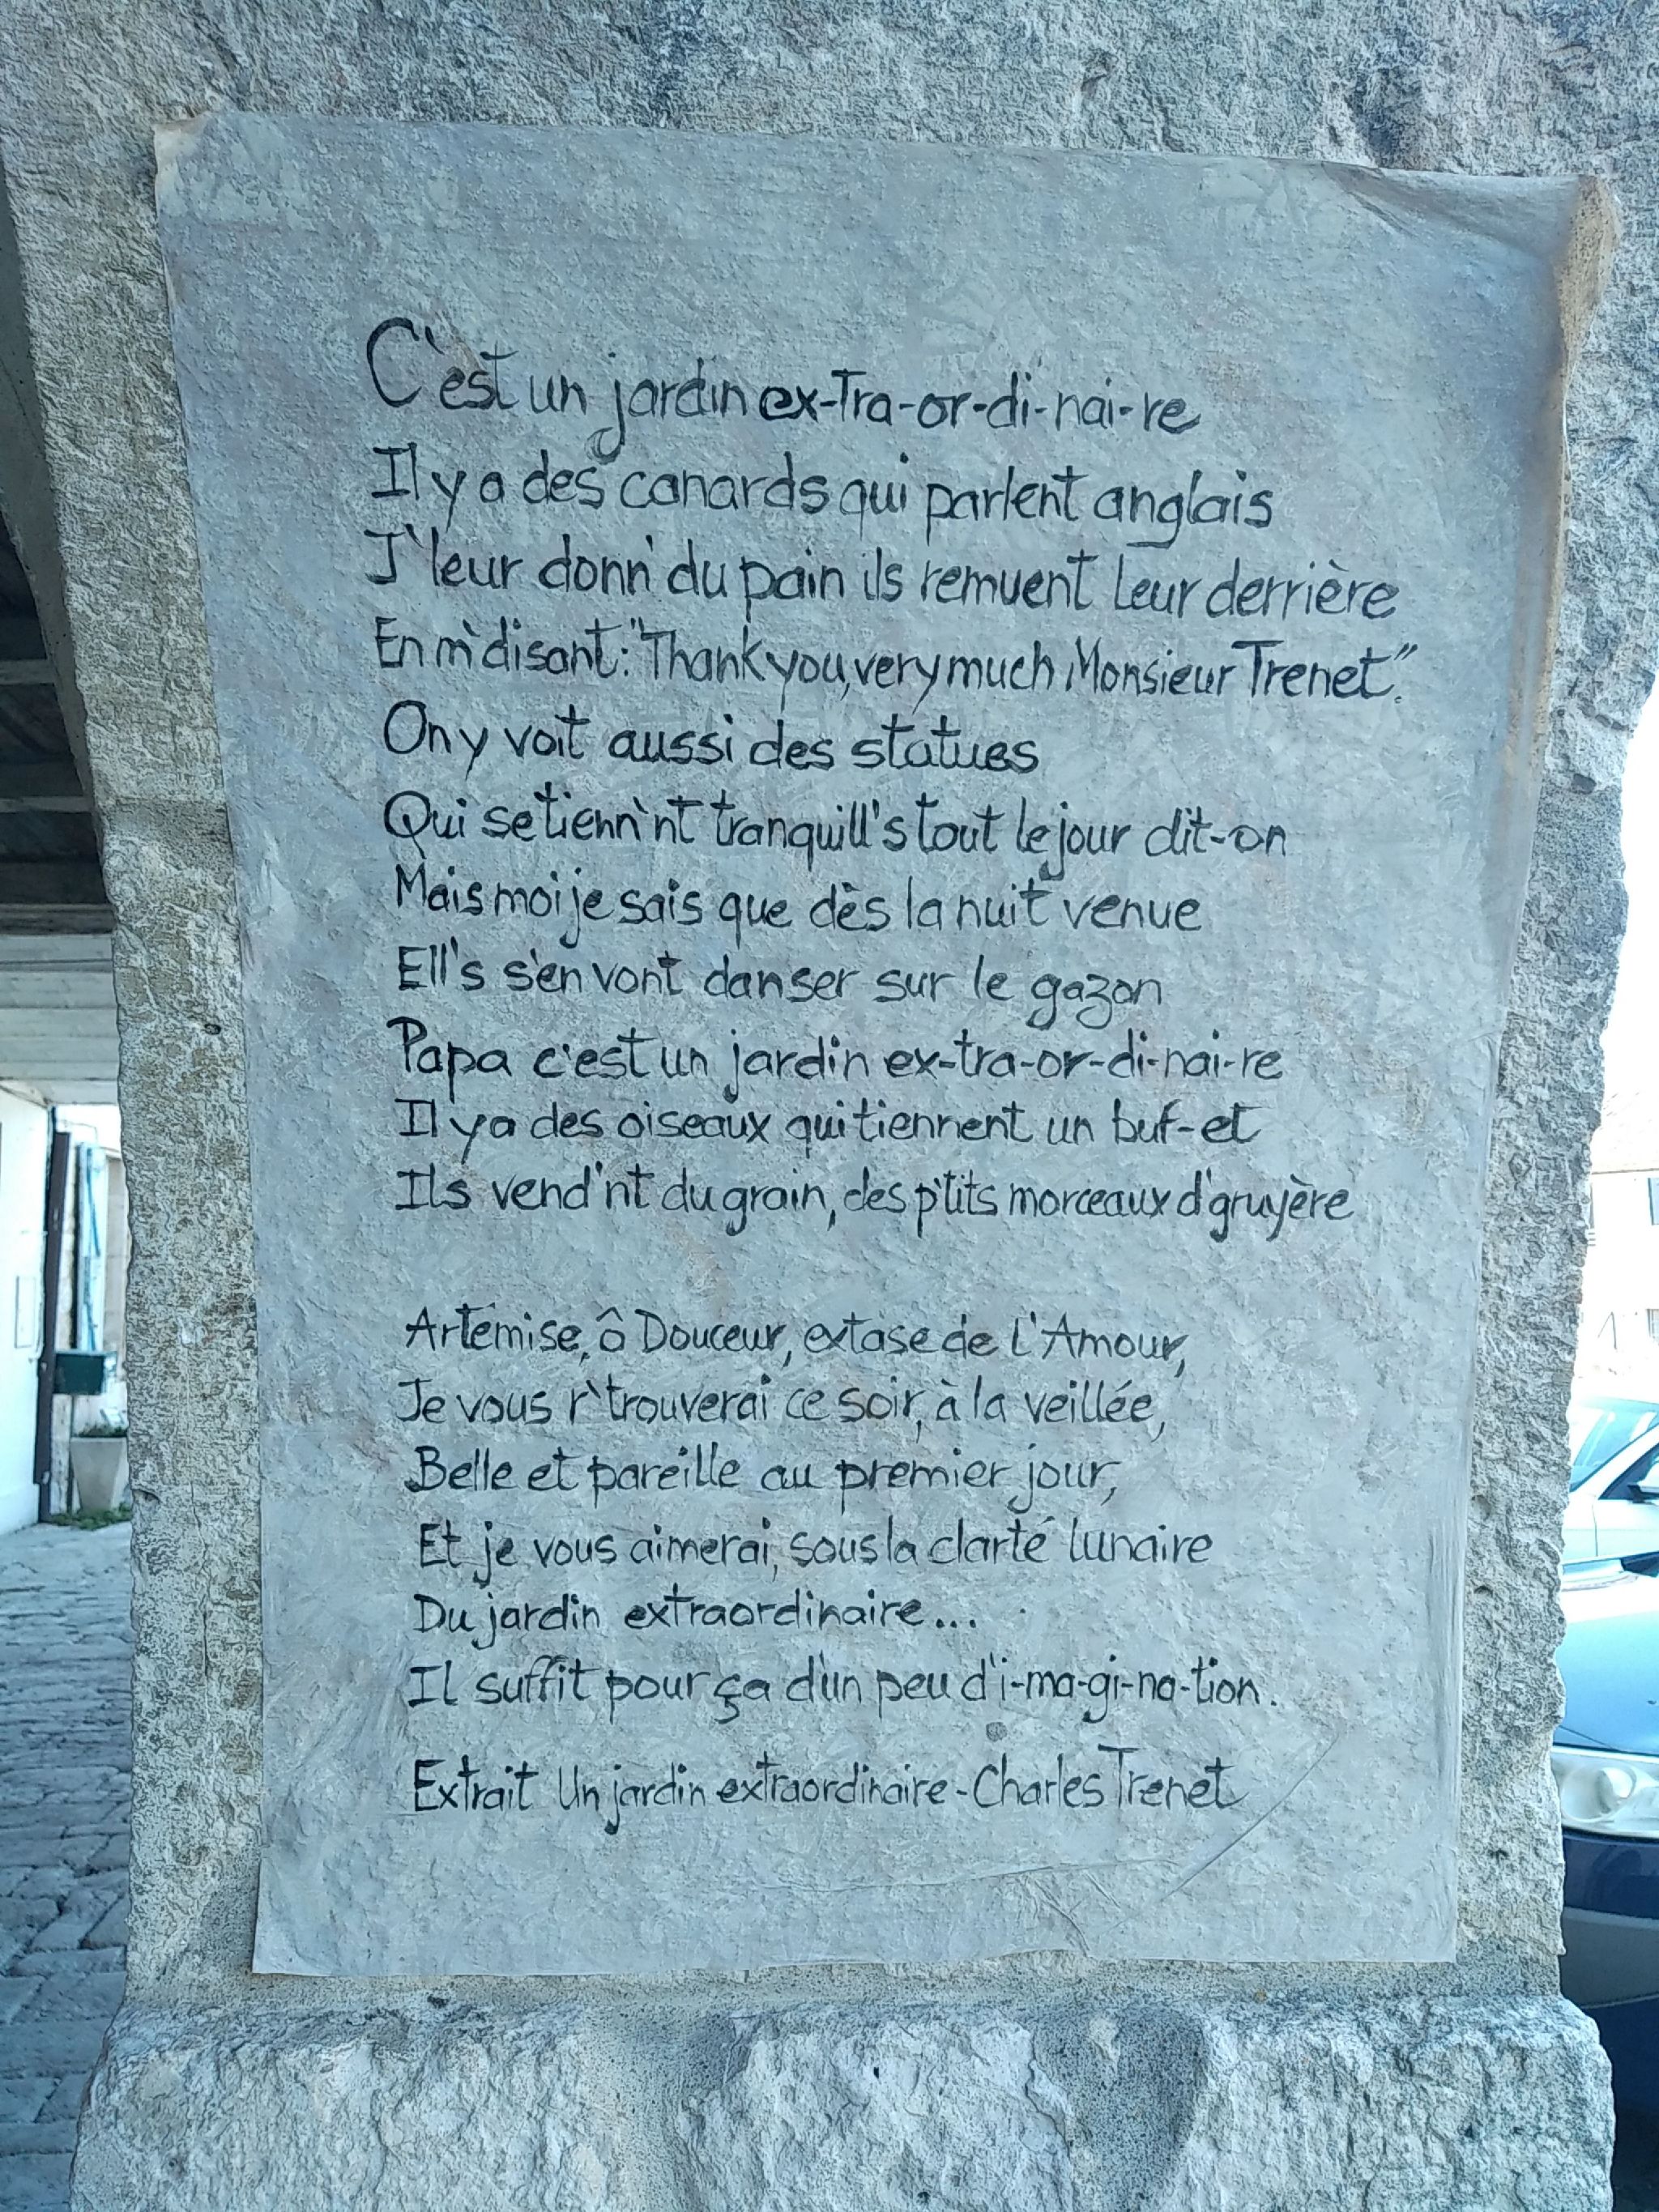 C'est un jardin ex-Tra-or-di-nai-re
Il y a des canards qui parlent anglais
J'leur donn' du pain ils remuent leur derrière
En m'disant : "Thank you, very much Monsieur Trenet".
On y voit aussi des statues
Qui se tienn'nt tranquill's tout le jour dit-on
Mais moi je sais que dès la nuit venue
Ell's s'en vont danser sur le gazon
Papa c'est un jardin ex-tra-or-di-nai-re
Il y a des oiseaux qui tiennent un buf-et
Ils vend'nt du grain, des p'tits morceaux d'gruyère
Artémise, ô Douceur, extase de l'Amour,
Je vous r'trouverai ce soir, à la veillée,
Belle et pareille au premier jour,
Et je vous aimerai, sous la clarté lunaire
Du jardin extraordinaire...
Il suffit pour ça d'un peu d'i-ma-gi-na-tion.
Extrait Un jardin extraordinaire - Charles Trenet